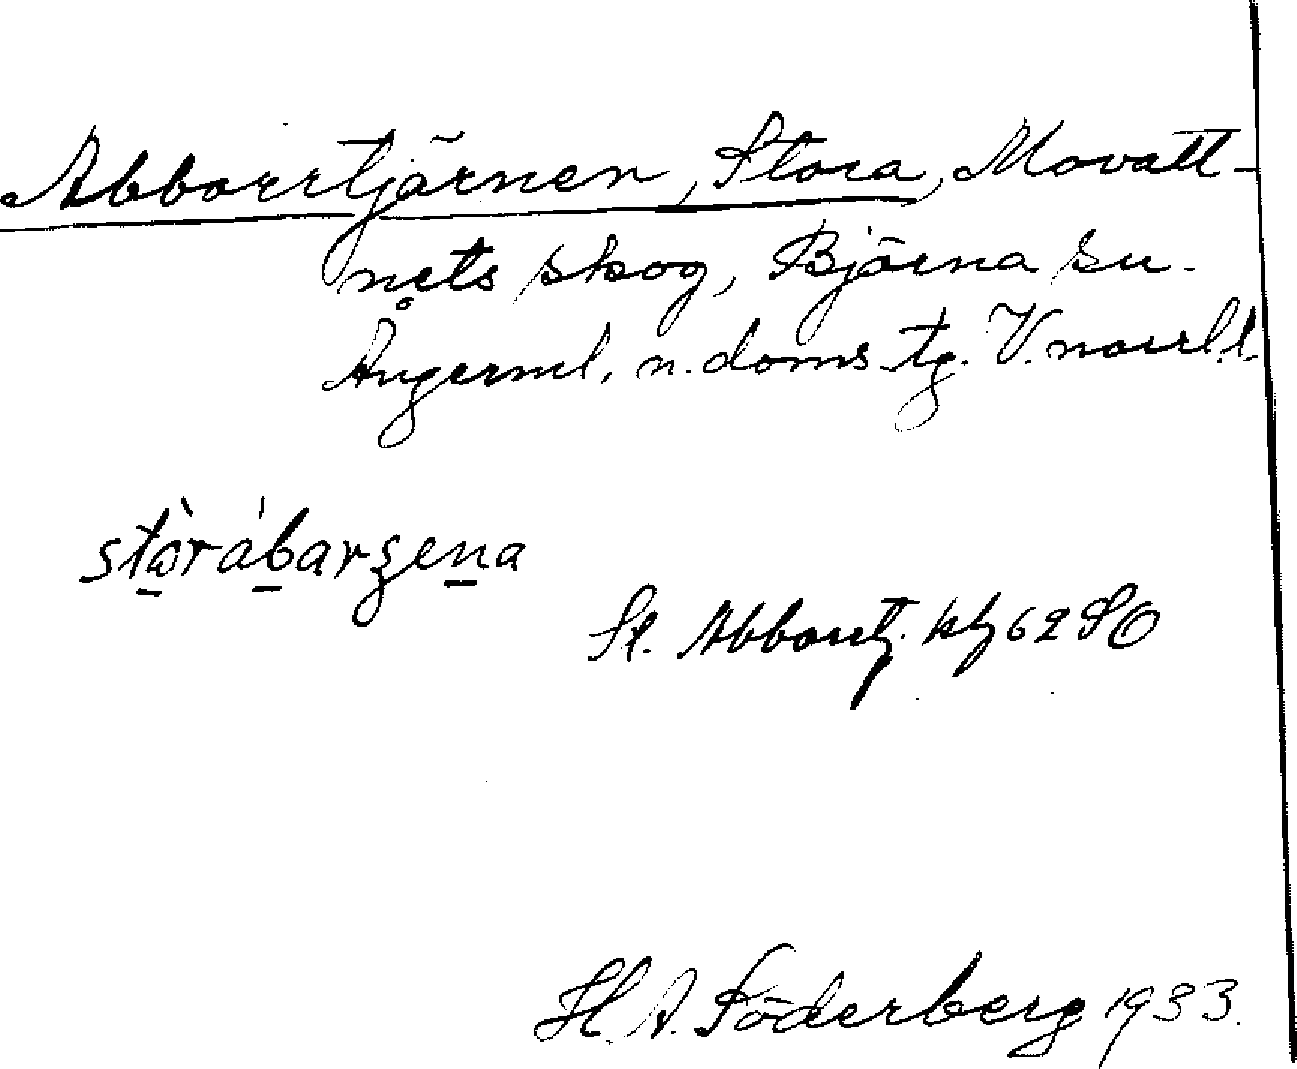 Abborrtjärnen, Stora, Movatt-
nets skog, Björna sn.
Ångerml. n. doms. tg. V. norrl l.
stòrábarʒena
St. Abborrtj. kbl 62 SO
H. A. Söderberg 1933.